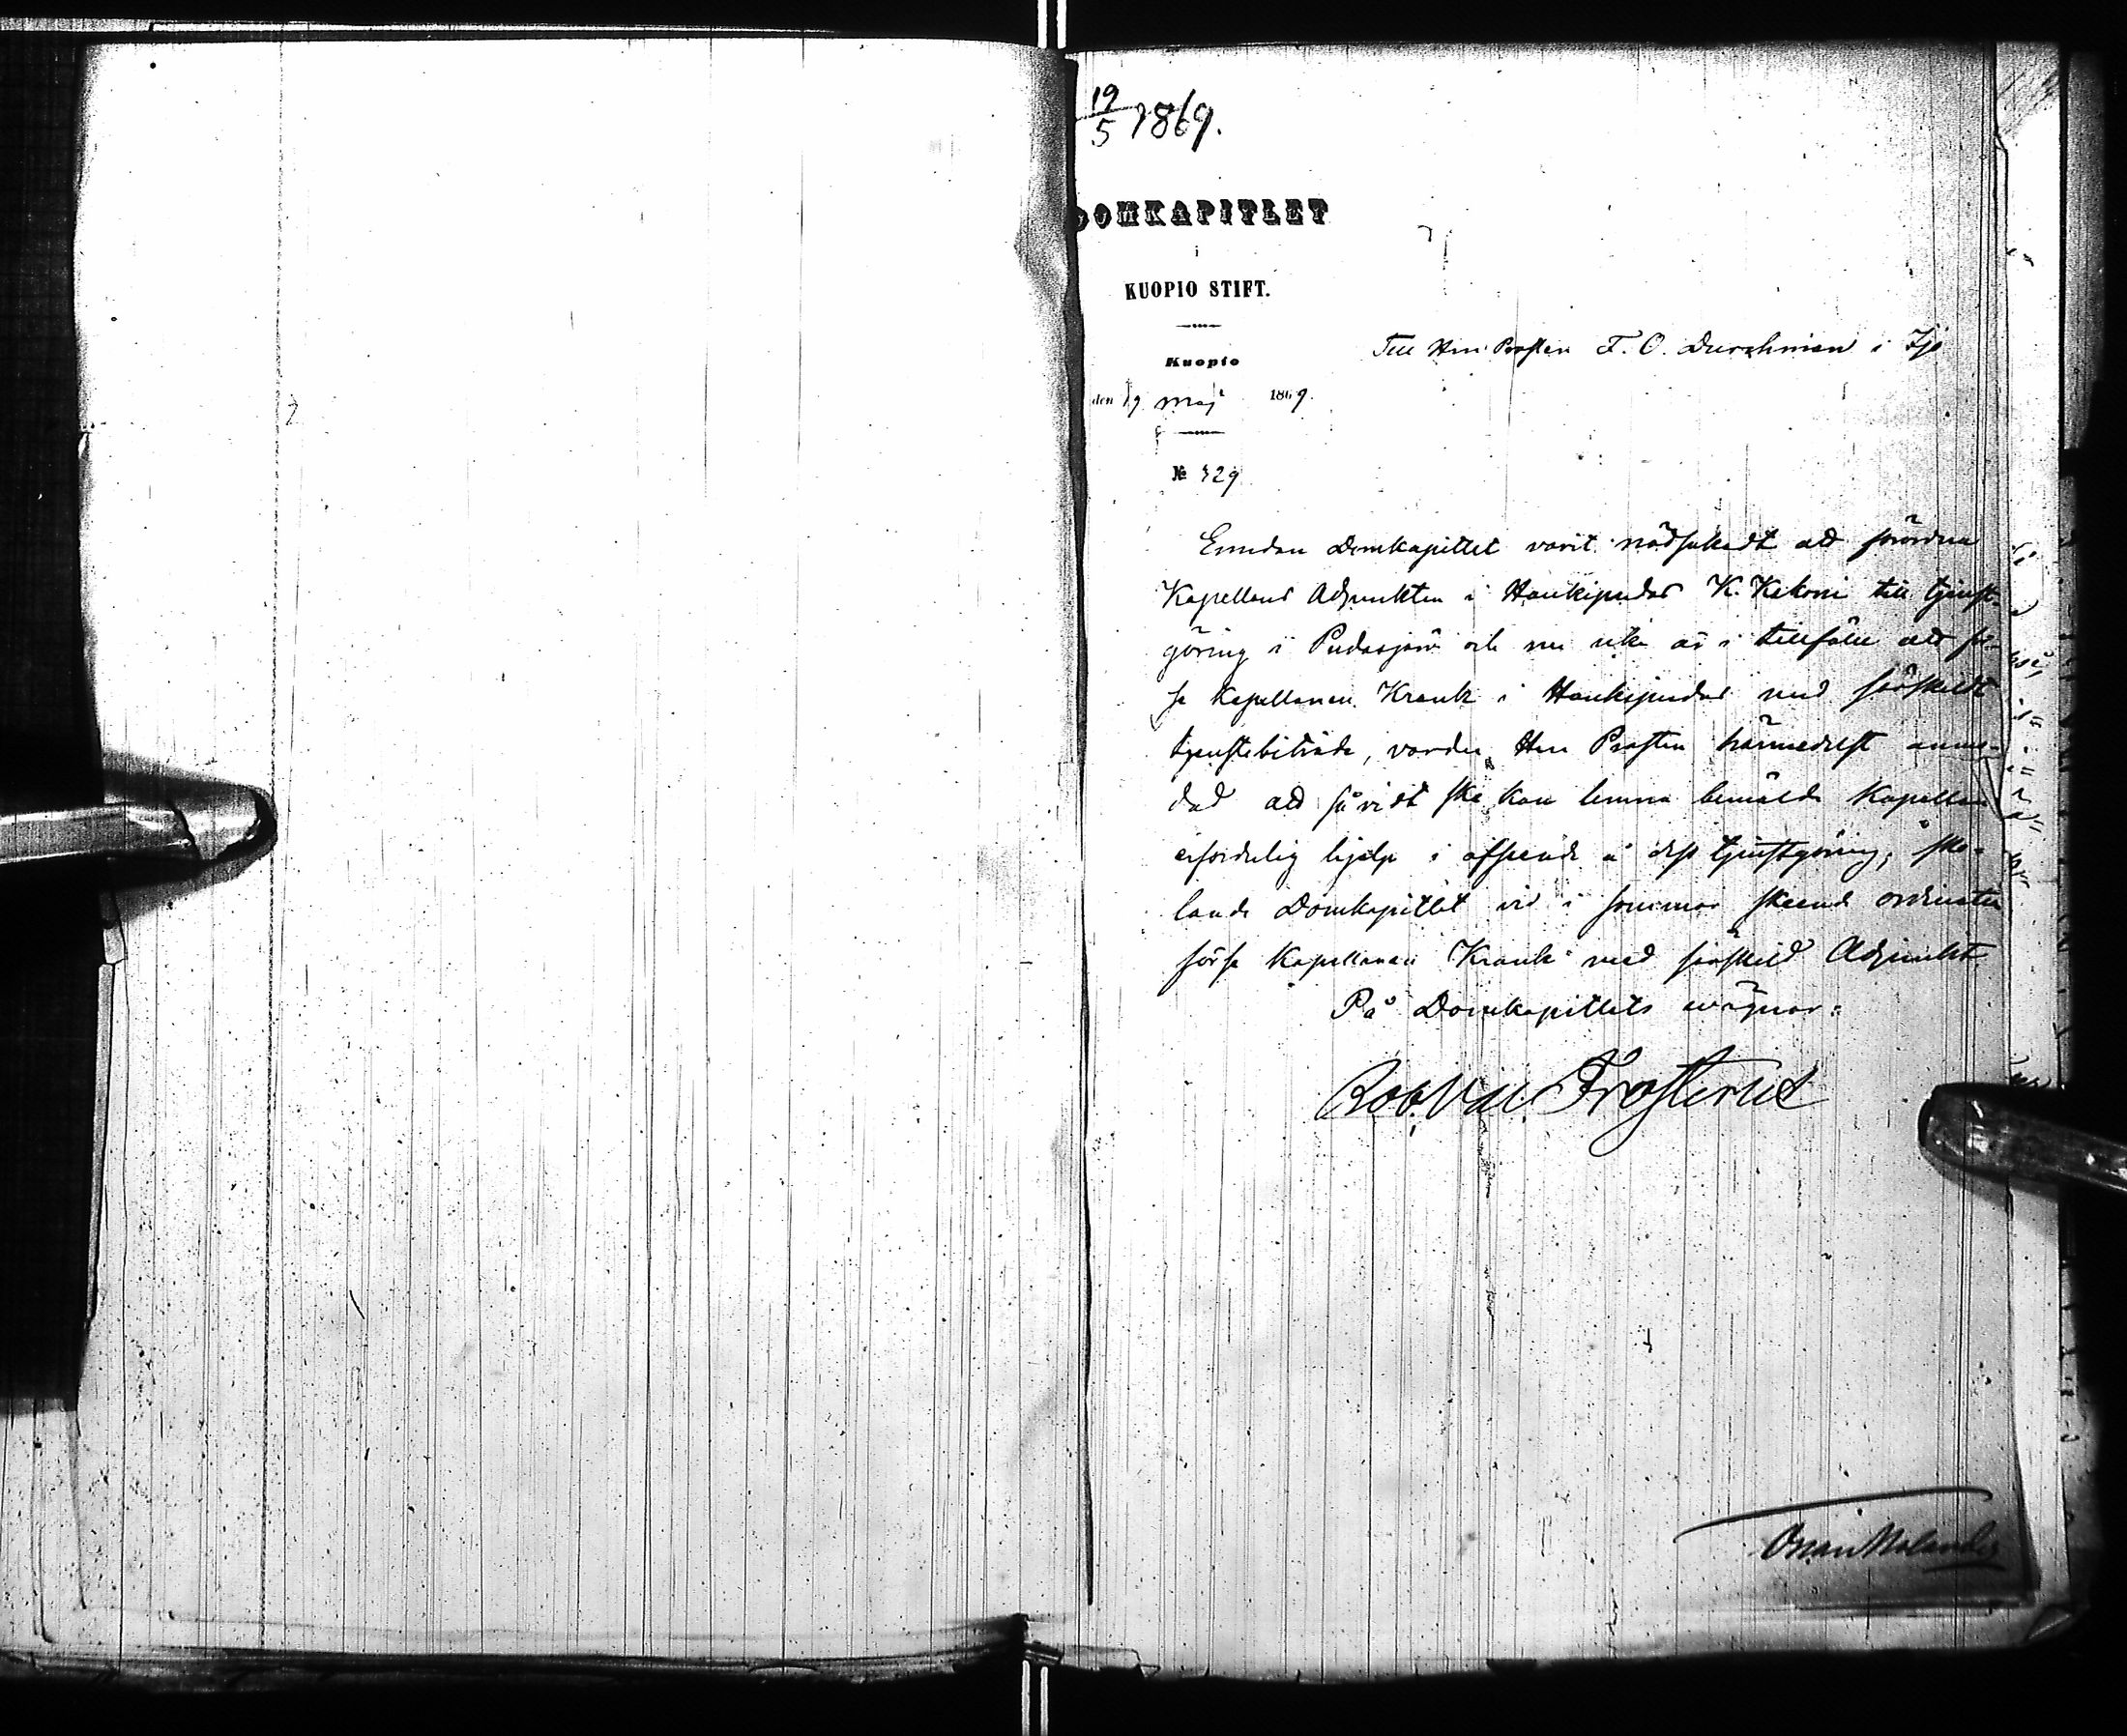 19/5 1869.
DOMKAPITLET
i
KUOPIO STIFT.
Kuopio
den 19 maj 1869.
№ 329
Till Herr Prosten F. O. Durchman i Ijo
Emedan Domkapitlet varit nödsakadt att förordna
Kapellans Adjunkten i Haukipudas K. Kekoni till tjenst-
göring i Pudasjärvi och nu icke är i tillfälle att för-
se Kapellanen Krank i Haukipudas med särskildt
tjenstebiträde, varder Herr Prosten härmedelst anmo-
dad att såvidt ske kan lemna bemälde Kapellan
erforderlig hjelp i afseende å dess tjenstgöring, sko-
lande Domkapitlet vid i sommar skeende
förse Kapellanen Krank med särskild Adjunkt.
På Domkapitlets wägnar:
Rob. Val. Frosterus
Oskar Molander